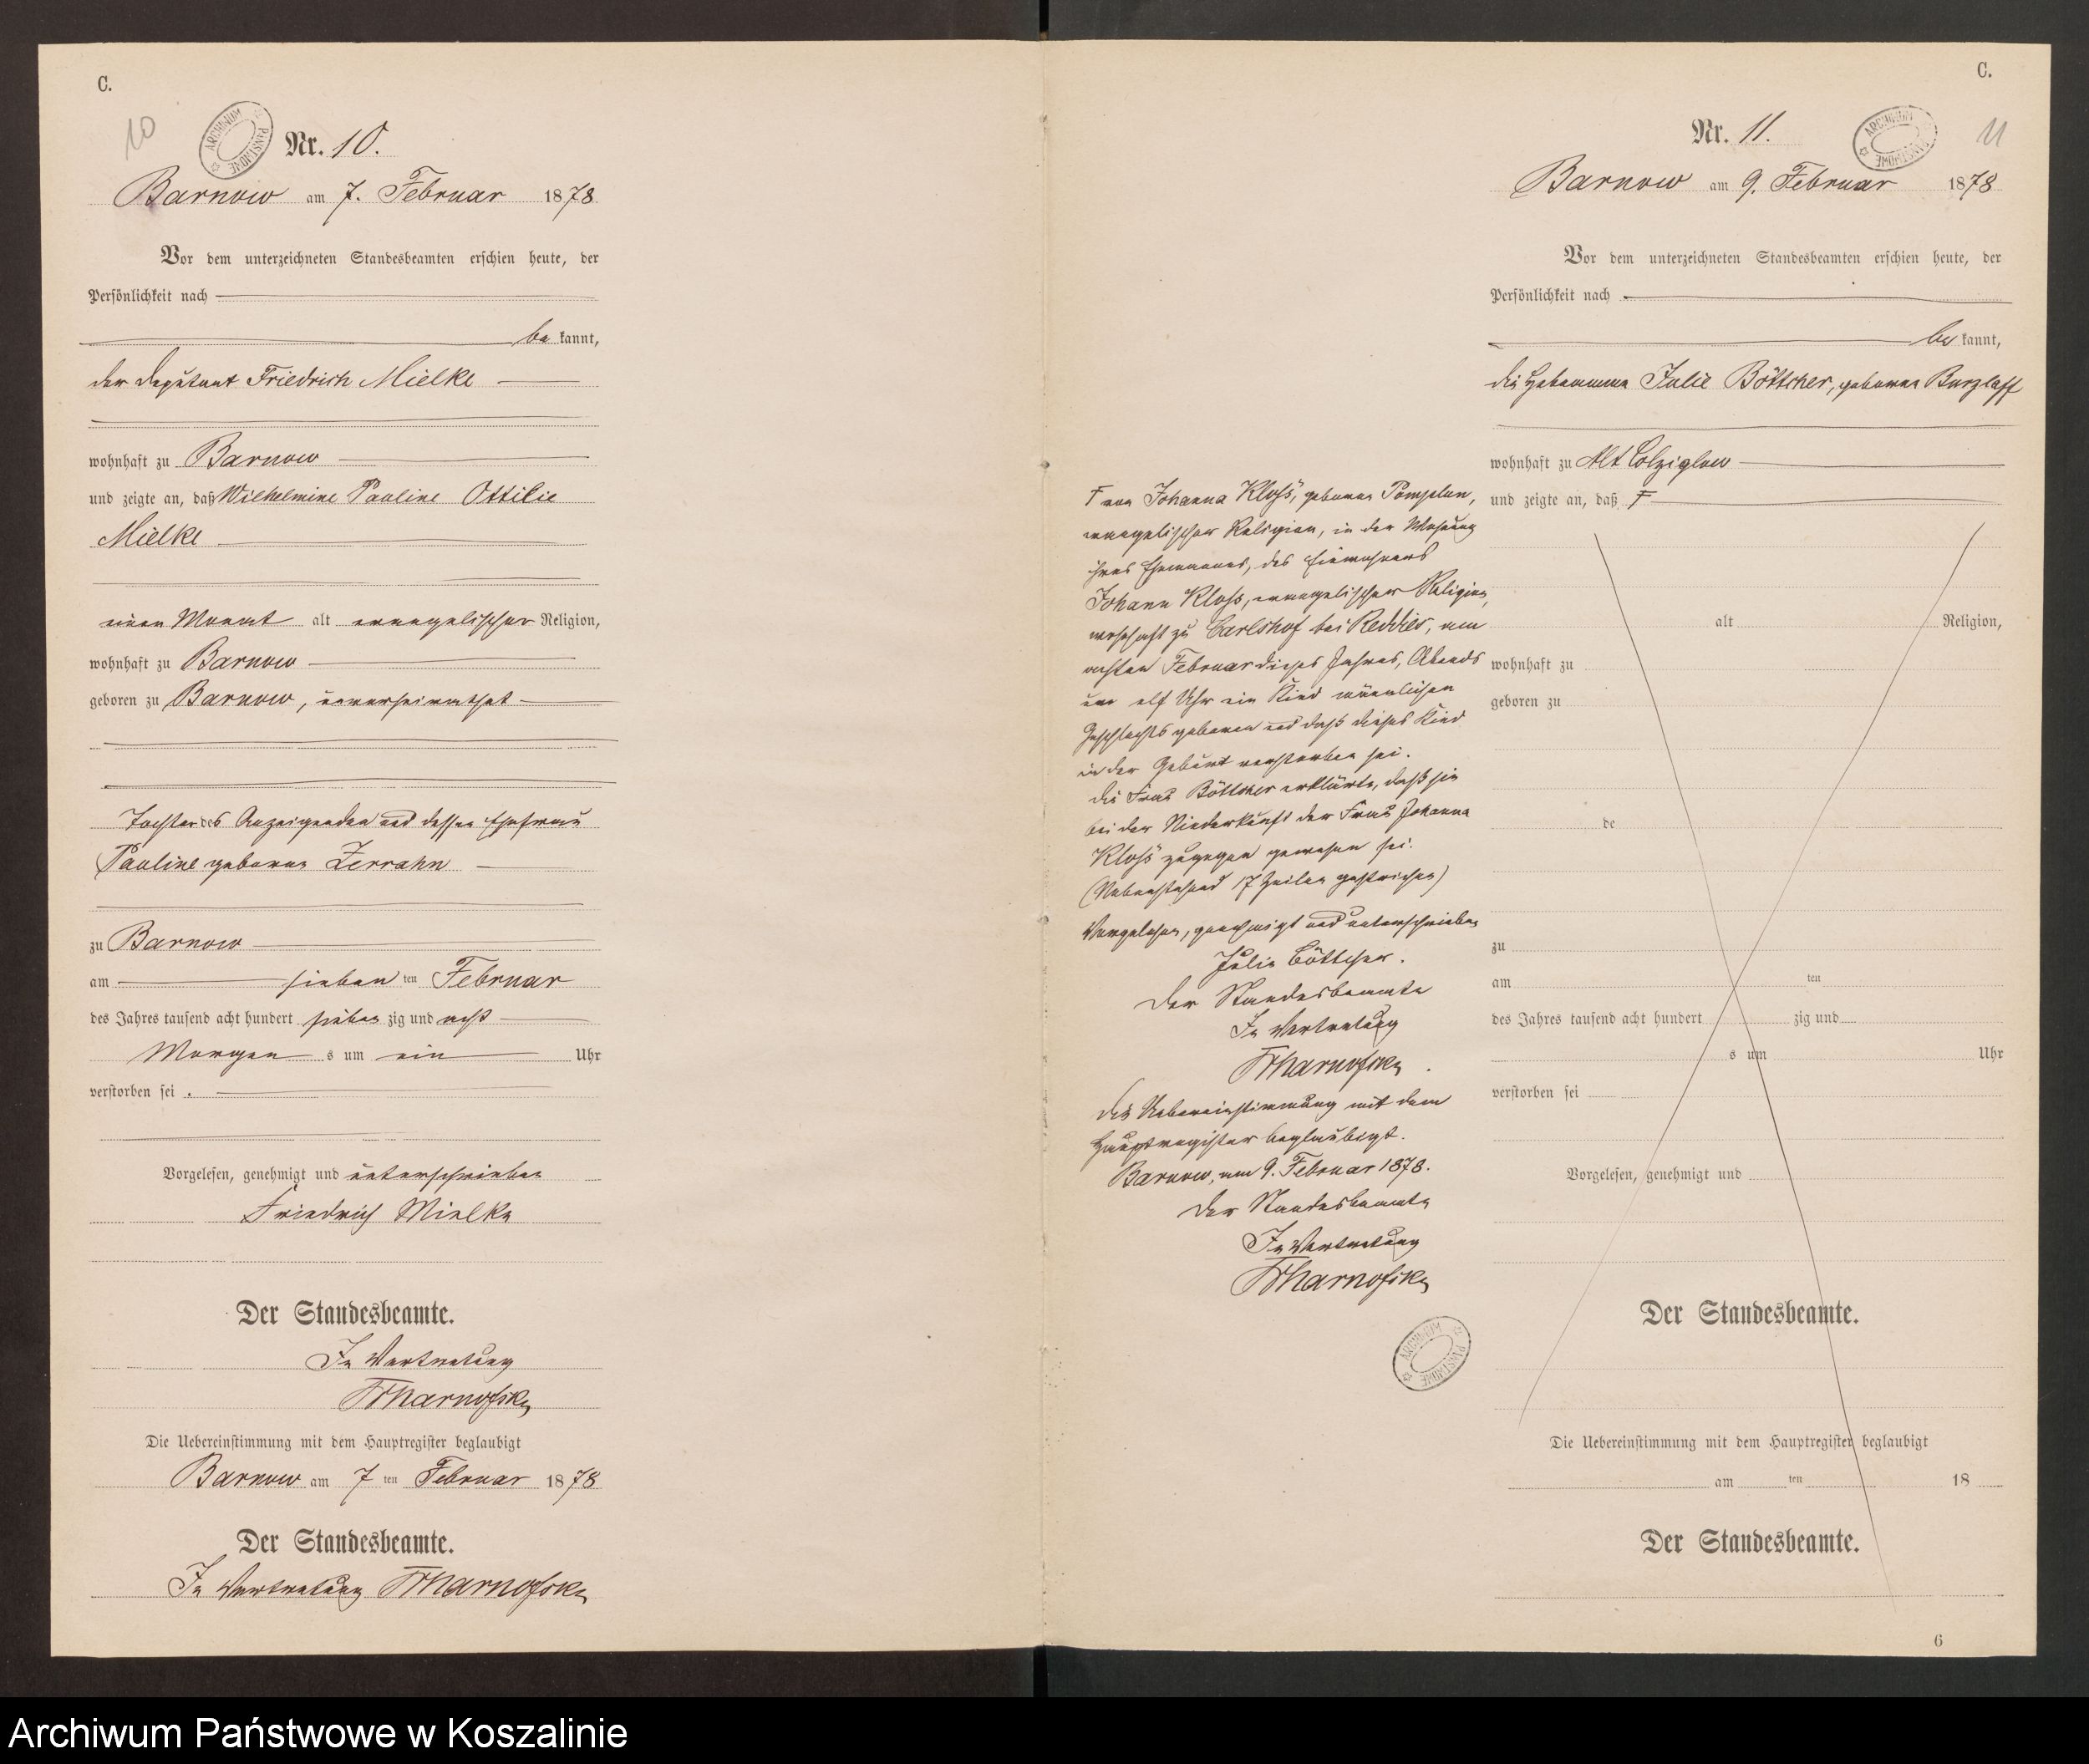 C.
10
ARCHIWUM PAŃSTWOWE
Nr. 10.
Barnow am 7. Februar 1878
Vor dem unterzeichneten Standesbeamten erschien heute, der
Persönlichkeit nach
be kannt,
der Deputant Friedrich Mielke
wohnhaft zu Barnow
und zeigte an, daß Wilhelmine Pauline Ottilie
Mielke
einen Monat alt evangelischer Religion,
wohnhaft zu Barnow
geboren zu Barnow, unverheirathet
Tochter des Anzeigenden und dessen Ehefrau
Pauline geborene Zerrahn
zu Barnow
am sieben ten Februar
des Jahres tausend acht hundert sieben zig und acht
Morgen s um ein Uhr
verstorben sei.
Vorgelesen, genehmigt und unterschrieben
Friedrich Mielke
Der Standesbeamte.
In Vertretung
Die Uebereinstimmung mit dem Hauptregister beglaubigt
Barnow am 7 ten Februar 1878
Der Standesbeamte.
In Vertretung
C.
11
ARCHIWUM PAŃSTWOWE
Nr. 11.
Barnow am 9. Februar 1878
Vor dem unterzeichneten Standesbeamten erschien heute, der
Persönlichkeit nach
be kannt,
die Hebamme Julie Böttcher, geborene Burzlaff
wohnhaft zu Alt Colziglow
und zeigte an, daß F
alt Religion,
wohnhaft zu
geboren zu
de
zu
am ten
des Jahres tausend acht hundert zig und
s um Uhr
verstorben sei
Vorgelesen, genehmigt und
Der Standesbeamte.
Die Uebereinstimmung mit dem Hauptregister beglaubigt
am ten 18
Der Standesbeamte.
6
F von Johanna Kloß, geborene Pomplun,
evangelischer Religion, in der Wohnung
ihres Ehemannes, des Einwohners
Johann Kloß, evangelischer Religion,
wohnhaft zu Carlshof bei Reddies, am
achten Februar dieses Jahres, Abends
um elf Uhr ein Kind männlichen
Geschlechts geboren und daß dieses Kind
in der Geburt verstorben sei.
Die Frau Böttcher erklärte, daß sie
bei der Niederkunft der Frau Johanna
Kloß zugegen gewesen sei.
(Nebenstehend 17 Zeilen gestrichen)
Vorgelesen, genehmigt und unterschrieben
Julie Böttcher.
Der Standesbeamte
In Vertretung
Die Uebereinstimmung mit dem
Hauptregister beglaubigt.
Barnow, am 9. Februar 1878.
Der Standesbeamte
In Vertretung
ARCHIWUM PAŃSTWOWE
Archiwum Państwowe w Koszalinie